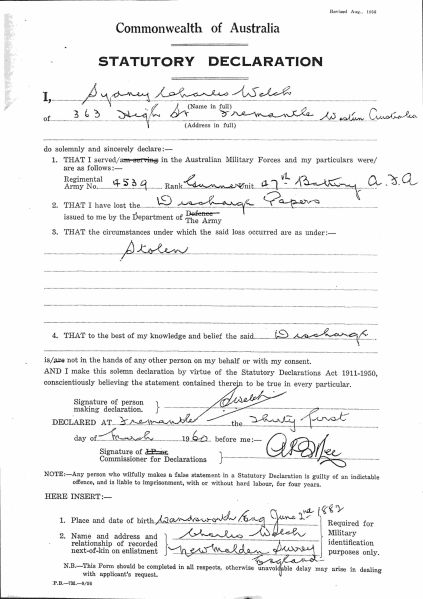 Revised Aug., 1952
Commonwealth of Australia
STATUTORY DECLARATION
I, Sydney Charles Welch
(Name in full)
of 363 High St Fremantle Western Australia
(Address in full)
do solemnly and sincerely declare:—
1. THAT I served/am serving in the Australian Military Forces and my particulars were/
are as follows:—
Regimental
Army No. 4539 Rank Gunner Unit 47th Battery A.F.A
2. THAT I have lost the Discharge Papers
issued to me by the Department of Defence
The Army
3. THAT the circumstances under which the said loss occurred are as under:—
Stolen
4. THAT to the best of my knowledge and belief the said Discharge
is/are not in the hands of any other person on my behalf or with my consent.
AND I make this solemn declaration by virtue of the Statutory Declarations Act 1911-1950,
conscientiously believing the statement contained therein to be true in every particular.
Signature of person
making declaration. } SWelch
DECLARED AT Fremantle the Thirty first
day of March 1960 before me:—
Signature of J.P. or
Commissioner for Declarations }
NOTE:—Any person who wilfully makes a false statement in a Statutory Declaration is guilty of an indictable
offence, and is liable to imprisonment, with or without hard labour, for four years.
HERE INSERT:—
1. Place and date of birth Wandsworth Eng June 2nd 1882
2. Name and address and
relationship of recorded
next-of-kin on enlistment
Charles Welch
New Malden Surrey
England
Required for
Military
identification
purposes only.
N.B.—This Form should be completed in all respects, otherwise unavoidable delay may arise in dealing
with applicant's request.